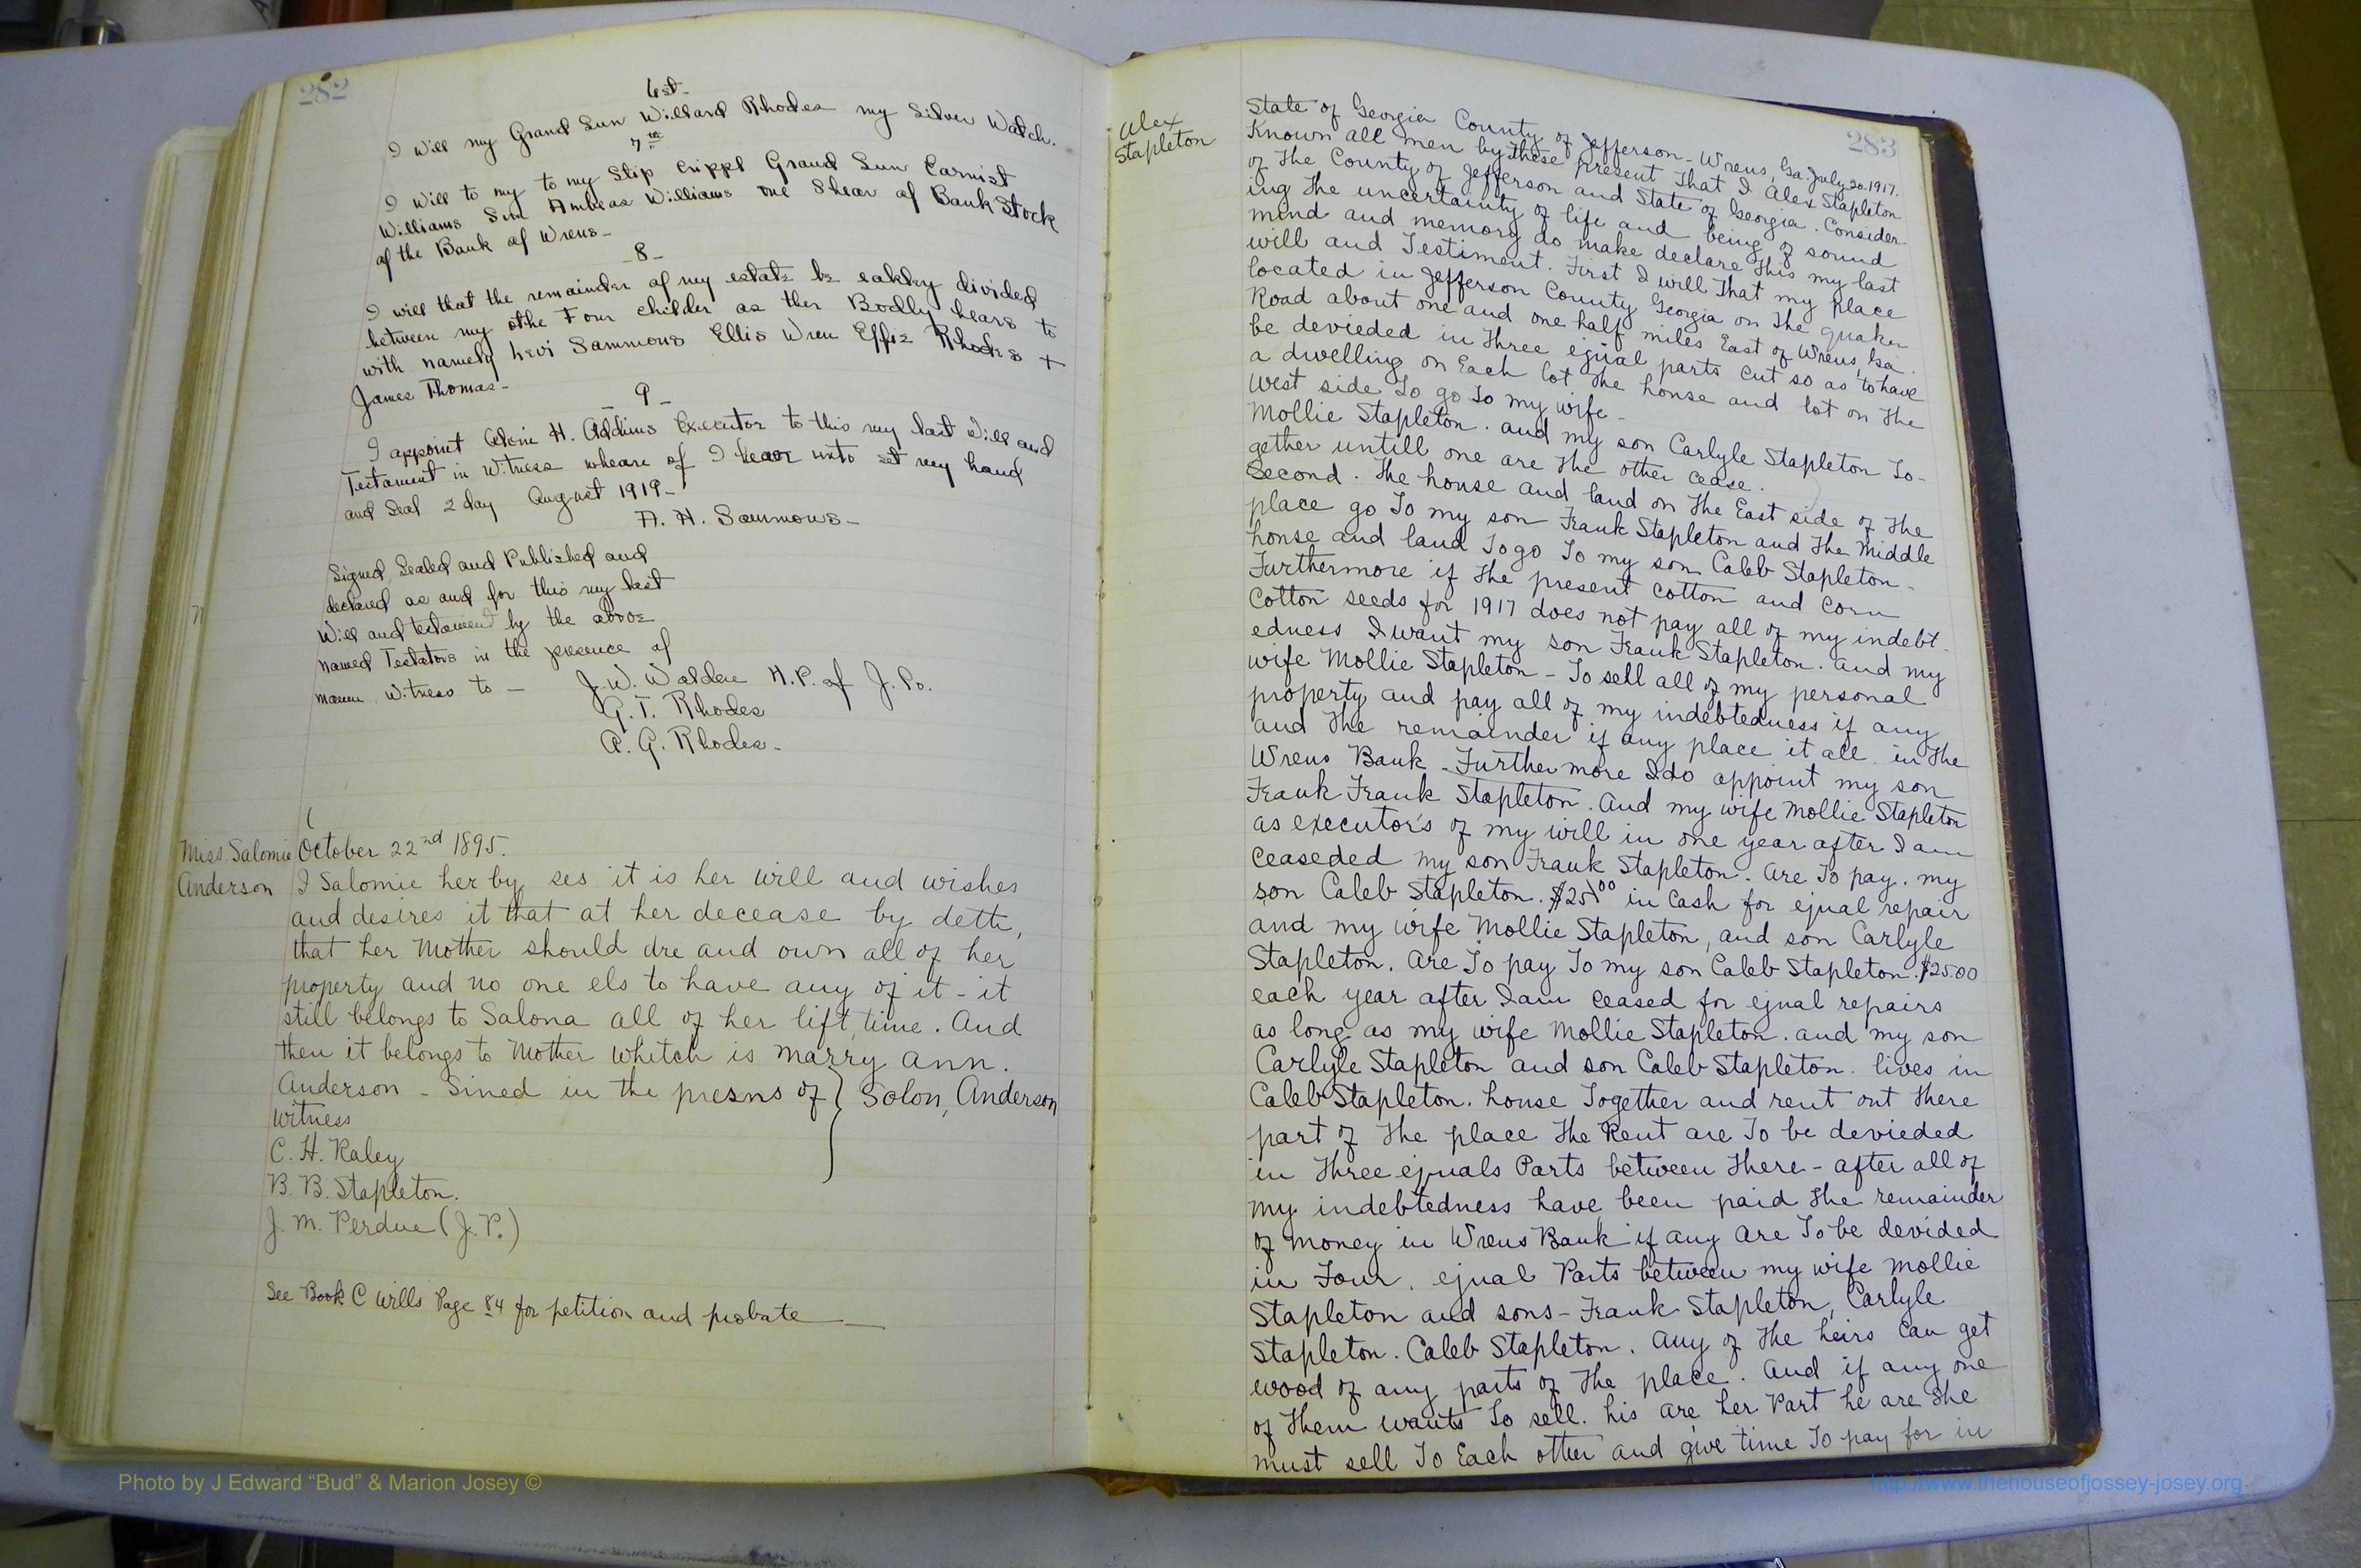 282
6st-
I will my Grand Sun Willard Rhodes my Silver Watch.
7th
I will to my to my Step Crippl Grand Sun Earnist
Williams Sun Ambeas Williams one Shear of Bank Stock
of the Bank of Wrens-
-8-
I will that the remainder of my estate be eakley divided
between my othe Four childer as ther Bodly hears to
with namely Levi Sammons Ellis Wren Effie Rhodes +
James Thomas-
-9-
I appoint H. Addims Executor to this my last Will and
Testament in Witness wheare of I hear unto set my hand
and Seal 2 day August 1919-
A. H. Sammons-
Signed, Sealed and Published and
declared as and for this my last
Will and testament by the above
named Testators in the presence of
witness to -
J. W. Walden N.P. of J. Co.
G. T. Rhodes
A. G. Rhodes-
Miss. Salomie
Anderson
October 22nd 1895.
I Salomie her by ses it is her will and wishes
and desires it that at her decease by deth,
that her Mother should dre and own all of her
property and no one els to have any of it - it
still belongs to Salona all of her lift, time. And
then it belongs to Mother whitch is marry ann.
Anderson - Sined in the presns of } Solon, Anderson
Witness
C. H. Raley
B. B. Stapleton.
J. M. Perdue (J. P.)
See Book C Wills Page 84 for petition and probate
283
Alex
Stapleton
State of Georgia County of Jefferson - Wrens, Ga. July 20. 1917.
Known all men by these present That I Alex Stapleton
of The County of Jefferson and State of Georgia. Consider-
ing The uncertainty of life and being of sound
mind and memory do make declare This my last
will and Testiment. First I will That my place
located in Jefferson County Georgia on The quaker
Road about one and one half miles East of Wrens, Ga.
be devieded in Three ejual parts cut so as to have
a dwelling on Each lot The house and lot on The
West side To go To my wife -
Mollie Stapleton. and my son Carlyle Stapleton To-
gether untill one are The other cease.
Second. The house and land on The East side of The
place go To my son Frank Stapleton and The Middle
house and land To go To my son Caleb Stapleton -
Furthermore if The present cotton and Corn
Cotton seeds for 1917 does not pay all of my indebt-
edness I want my son Frank Stapleton. and my
wife Mollie Stapleton - To sell all of my personal
property and pay all of my indebtedness if any
and The remainder if any place it all in The
Wrens Bank - Furthermore I do appoint my son
Frank Frank Stapleton. And my wife Mollie Stapleton
as executor's of my will in one year after I am
ceaseded my son Frank Stapleton. are To pay. my
son Caleb Stapleton. $25.00 in Cash for ejual repair
and my wife Mollie Stapleton, and son Carlyle
Stapleton. Are To pay To my son Caleb Stapleton. $25.00
each year after I am ceased for ejual repairs
as long as my wife Mollie Stapleton. and my son
Carlyle Stapleton and son Caleb Stapleton. lives in
Caleb Stapleton. house Together and rent out There
part of The place The Rent are To be devieded
in Three ejuals Parts between There - after all of
my indebtedness have been paid The remainder
of money in Wrens Bank if any Are To be devided
in Four. ejual Parts between my wife Mollie
Stapleton and sons - Frank Stapleton, Carlyle
Stapleton. Caleb Stapleton. Any of The heirs can get
wood of any parts of The place. And if any one
of Them wants To sell. his are her Part he are She
must sell To Each other and give time To pay for in
Photo by J Edward “Bud” & Marion Josey ©
http://www.thehouseofjossey-josey.org